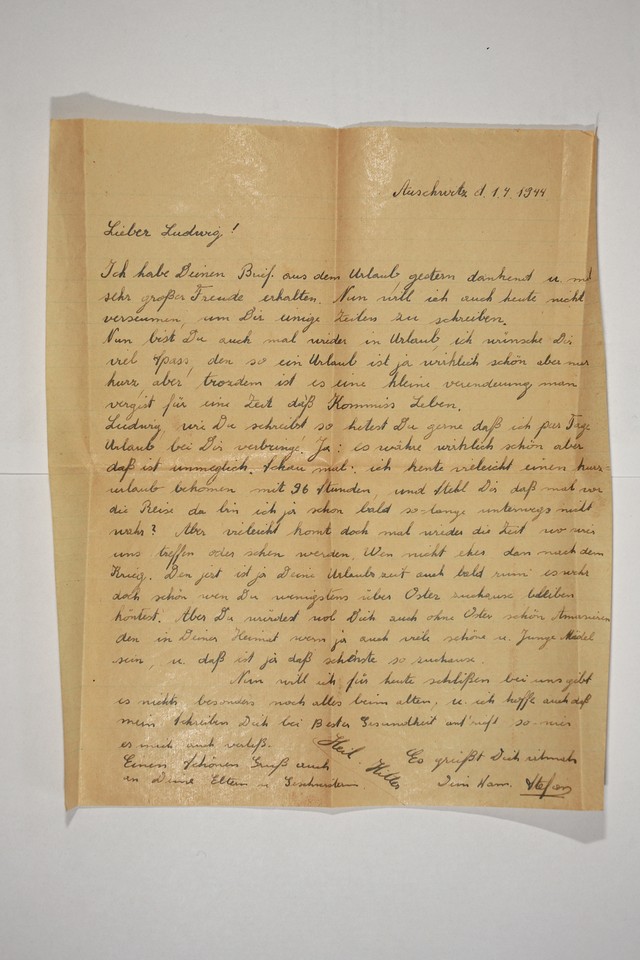 Auschwitz d. 1.4.1944
Lieber Ludwig!
Ich habe Deinen Brief. aus dem Urlaub gestern dankend u. mit
sehr großer Freude erhalten. Nun will ich auch heute nicht
verseumen, um Dir einige Zeilen zu schreiben.
Nun bist Du auch mal wieder in Urlaub, ich wünsche Dir
viel Spass, den so ein Urlaub ist ja wirklich schön aber nur
kurz, aber trozdem ist es eine kleine verenderung man
vergist für eine Zeit daß Kommiss Leben.
Ludwig, wie Du schreibst so hetest Du gerne daß ich par Tage
Urlaub bei Dir verbringe. Ja: es währe wirklich schön aber
daß ist unmeglich. Schau mal: ich kente vieleicht einen kurz-
urlaub bekomen mit 96 Stunden, und Stehl Dir daß mal vor
die Reise da bin ich ja schon bald so lange unterwegs nicht
wahr? Aber vieleicht komt doch mal wieder die Zeit wo wir
uns treffen oder sehen werden. Wen nicht eher dan nach dem
Krieg. Den jezt ist ja Deine Urlaubszeit auch bald rum es wehr
doch schön wen Du wenigstens über Oster zuhause bleiben
köntest. Aber Du würdest wol Dich auch ohne Oster schön Amursieren
den in Deiner Heimat wern ja auch viele schöne u. Junge Mädel
sein, u. daß ist ja daß schönste so zuhause.
Nun will ich für heute schlißen bei uns gibt
es nichts besonders noch alles beim alten, u. ich hoffe auch daß
mein Schreiben Dich bei Bester Gesundheit antrieft so wie
es mich auch verlaß.
Heil Hitler
Einen Schönen Gruß auch
an Deine Eltern u. Geschwistern
Es grüßt Dich
Dein Kam. Stefan